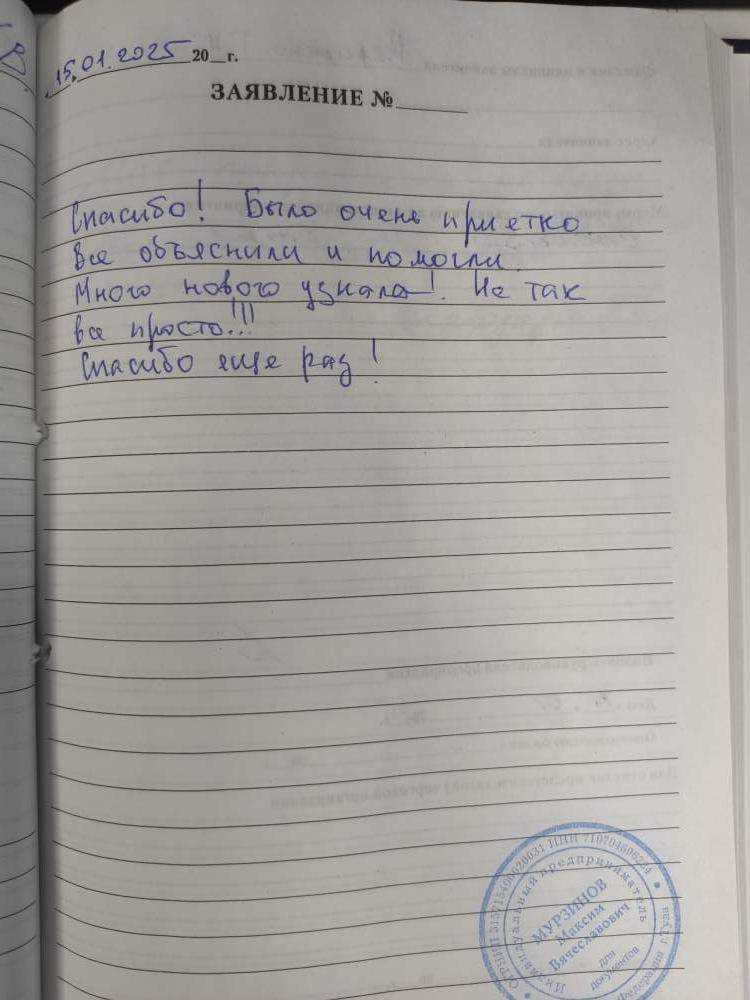 15.01.2025 20__г.
ЗАЯВЛЕНИЕ №
Спасибо! Было очень приетко.
Все объяснили и помогли.
Много нового узнала!. Не так
все просто!!!
Спасибо еще раз!
Индивидуальный предприниматель
МУРЗИНОВ
Максим
Вячеславович
для
документов